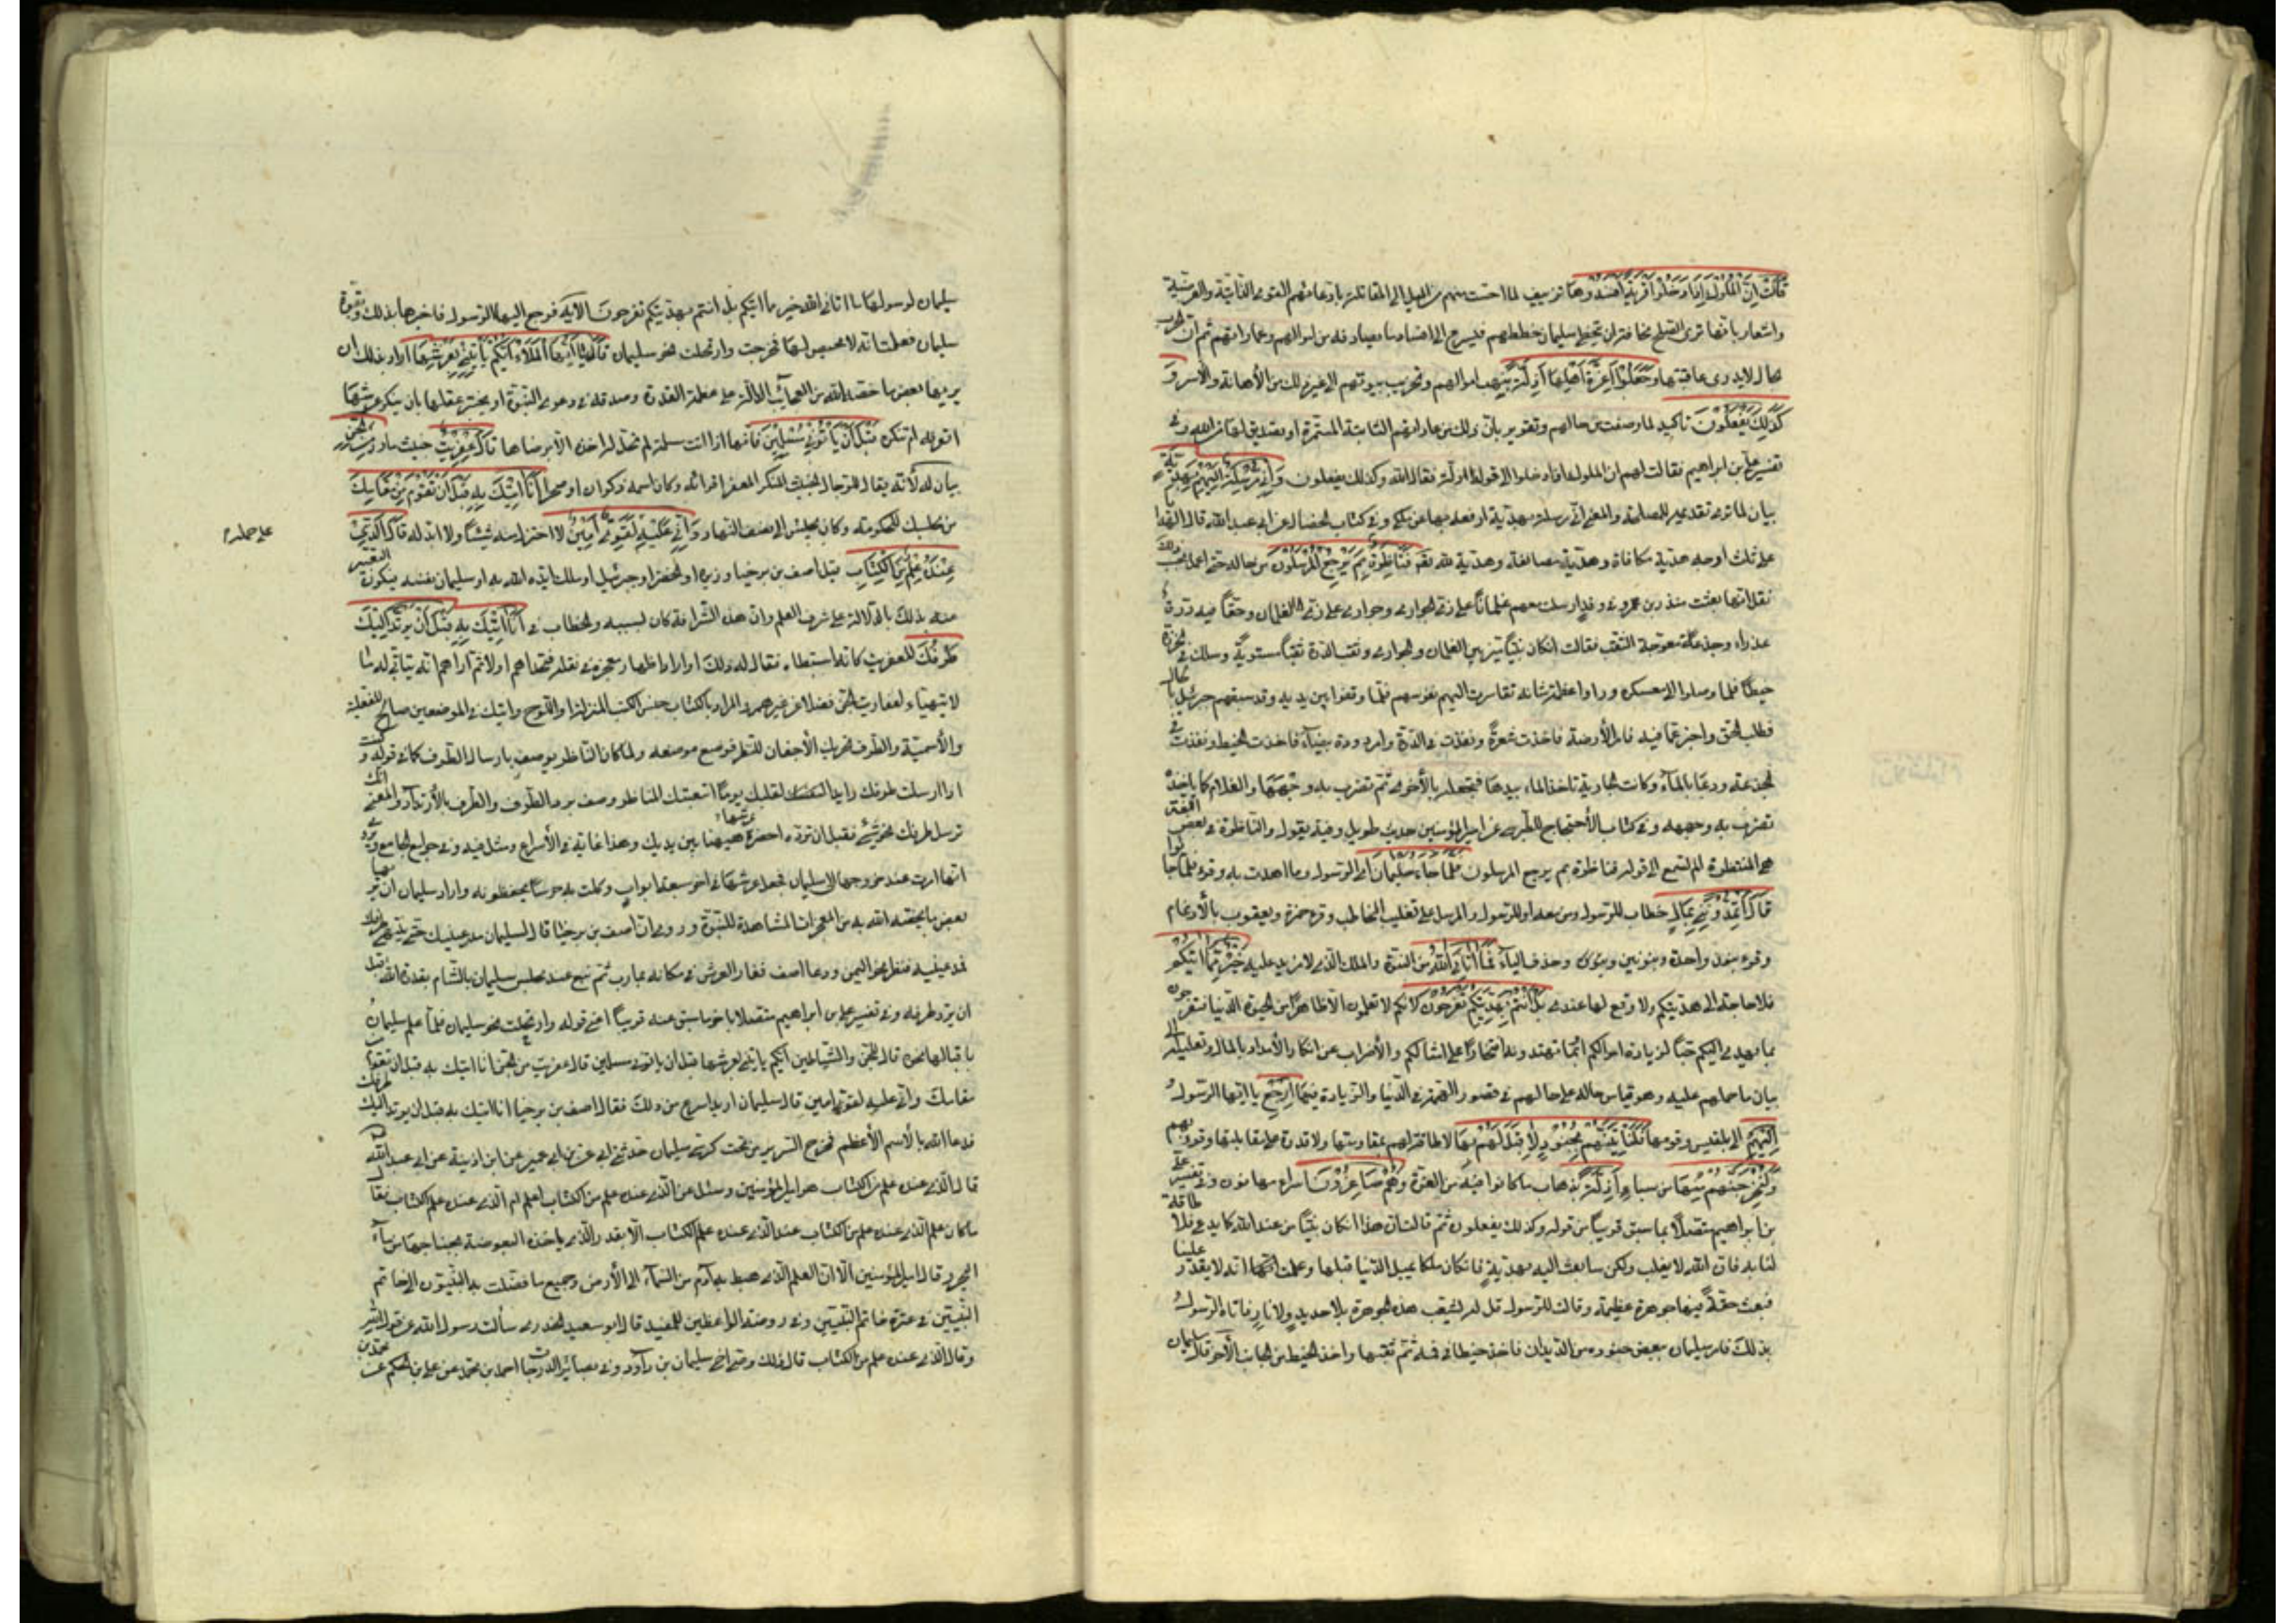 قَالَتْ إِنَّ الْمُلُوكَ إِذَا دَخَلُوا قَرْيَةً أَفْسَدُوهَا تزييف لما احست منهم من الميل الى المقاتلة بادعائهم القوى الذاتية والعرضية
واشعار بانها ترى الصلح مخافة ان يتخطى سليمان خططهم فيسرع الى افساد ما يصادفه من اموالهم وعماراتهم ثم ان الحرب
سجال لا يدرى عاقبتها وَجَعَلُوا أَعِزَّةَ أَهْلِهَا أَذِلَّةً بنهب اموالهم وتخريب ديارهم الى غير ذلك من الأهانة والأسر وَ
كَذَلِكَ يَفْعَلُونَ تاكيد لما وصفت من حالهم وتقرير بان ذلك من عاداتهم الثابتة المستمرة او تصديق لها من الله وفى
تفسير على بن ابراهيم فقالت لهم ان الملوك اذا دخلوا الى قوله اذلة فقال الله وكذلك يفعلون وَإِنِّي مُرْسِلَةٌ إِلَيْهِمْ بِهَدِيَّةٍ
بيان لما ترى تقديمه للمصالحة والمعنى انى مرسلة بهدية ادفعه بها عن ملكى وفى كتاب الخصال عن ابى عبد الله قال الهدايا
على ثلث اوجه هدية مكافاة وهدية مصانعة وهدية لله فَنَاظِرَةٌ بِمَ يَرْجِعُ الْمُرْسَلُونَ من حاله حتى اعمل بحسب ذلك
نقل انها بعثت منذر بن عمرو فى وفد وارسلت معهم غلمانا على زى الجوارى وجوارى على زى الغلمان وحقا فيه درة
عذراء وجذعة معوجة الثقب فقالت ان كان نبيا ميز بين الغلمان والجوارى وثقب الدرة ثقبا مستويا وسلك فى الخرزة
خيطا فلما وصلوا الى معسكره وراوا عظمة شانه تقاصرت اليهم نفوسهم فلما وقفوا بين يديه وقد سبقهم جبرئيل بالحال
فطلب الحق واخبر عما فيه فامر الأرضة فاخذت شعرة ونفذت فى الدرة وامر دودة بيضاء فاخذت الخيط ونفذت فى
الجذعة ودعا بالماء وكانت الجارية تاخذ الماء بيدها فتجعله بالأخرى ثم تضرب به وجهها والغلام كما ياخذه
تضرب به وجهه وفى كتاب الأحتجاج للطبرسى عن امير المؤمنين حديث طويل وفيه يقول والناظرة فى بعض اللغة
هى المنتظرة الم تسمع الى قوله فناظرة بم يرجع المرسلون فَلَمَّا جَاءَ سُلَيْمَانَ اى الرسول وما اهدت به وقرء فلما جاؤا
قَالَ أَتُمِدُّونَنِ بِمَالٍ خطاب للرسول ومن معه او للرسول والمرسل على تغليب المخاطب وقرء حمزة ويعقوب بالأدغام
وقرء بنون واحدة وبنونين وحذف الياء فَمَا آتَانِيَ اللَّهُ من النبوة والملك الذى لا مزيد عليه خَيْرٌ مِمَّا آتَاكُمْ
فلا حاجة الى هديتكم ولا وقع لها عندى بَلْ أَنْتُمْ بِهَدِيَّتِكُمْ تَفْرَحُونَ لانكم لا تعلمون الا ظاهرا من الحيوة الدنيا فتفرحون
بما يهدى اليكم حبا لزيادة اموالكم او بما تهدونه افتخارا على امثالكم والأضراب عن انكار الأمداد بالمال وتعليله الى
بيان ما حملهم عليه وهو قياس حاله على حالهم فى قصور الهمة فى الدنيا والزيادة فيها ارْجِعْ يا ايها الرسول
إِلَيْهِمْ الى بلقيس وقومها فَلَنَأْتِيَنَّهُمْ بِجُنُودٍ لَا قِبَلَ لَهُمْ بِهَا لا طاقة لهم بمقاومتها ولا قدرة على مقابلتها وقرء بهم
وَلَنُخْرِجَنَّهُمْ مِنْهَا من سبا أَذِلَّةً بذهاب ما كانوا فيه من العزة وَهُمْ صَاغِرُونَ اسراء مهانون وفى تفسير على
بن ابراهيم متصلا بما سبق قريبا من قوله وكذلك يفعلون ثم قالت ان هذا ان كان نبيا من عند الله كما يدعى فلا طاقة
لنا به فان الله لا يغلب ولكن سابعث اليه بهدية فان كان ملكا يميل الى الدنيا قبلها وعلمت انه لا يقدر علينا
فبعث حقة فيها جوهرة عظيمة وقالت للرسول قل له يثقب هذه الجوهرة بلا حديد ولا نار فاتاه الرسول
بذلك فامر سليمان بعض جنوده من الديدان فاخذ خيطا فى فيه ثم ثقبها واخذ الخيط من الجانب الآخر قال سليمان
سليمان لرسولها فما اتانى الله خير مما اتيكم بل انتم بهديتكم تفرحون الآية فرجع اليها الرسول فاخبرها بذلك وبقوة
سليمان فعلمت انه لا محيص لها فخرجت وارتحلت نحو سليمان قَالَ يَا أَيُّهَا الْمَلَأُ أَيُّكُمْ يَأْتِينِي بِعَرْشِهَا اراد بذلك ان
يريها بعض ما خصه الله من العجائب الدالة على عظمة القدرة وصدقه فى دعوى النبوة او يختبر عقلها بان ينكر عرشها
اتعرفه ام تنكره قَبْلَ أَنْ يَأْتُونِي مُسْلِمِينَ فانها اذا اتت مسلمة لم يحل اخذه الا برضاها قَالَ عِفْرِيتٌ خبيث مارد مِنَ الْجِنِّ
بيان له لأنه يقال للرجل الخبيث المنكر المعفر اقرانه وكان اسمه ذكوان او صخر أَنَا آتِيكَ بِهِ قَبْلَ أَنْ تَقُومَ مِنْ مَقَامِكَ
من مجلسك للحكومة وكان يجلس الى نصف النهار وَإِنِّي عَلَيْهِ لَقَوِيٌّ أَمِينٌ لا اختزل منه شيئا ولا ابدله قَالَ الَّذِي
على حمله
عِنْدَهُ عِلْمٌ مِنَ الْكِتَابِ قيل اصف بن برخيا وزيره او الخضر او جبرئيل او ملك ايده الله به او سليمان نفسه فيكون التعبير
عنه بذلك بالدلالة على شرف العلم وان هذه الشرافة كان بسببه والخطاب فى أَنَا آتِيكَ بِهِ قَبْلَ أَنْ يَرْتَدَّ إِلَيْكَ
طَرْفُكَ للعفريت كانه استبطاه فقال له ذلك او اراد اظهار معجزة فى نقله فتحداهم اولا ثم اراهم انه يتاتى له ما
لا يتهياء لعفاريت الجن فضلا عن غيرهم والمراد بالكتاب جنس الكتب المنزلة او اللوح واتيك فى الموضعين صالح للفعلية
والأسمية والطرف تحريك الأجفان للنظر فوضع موضعه ولما كان الناظر يوصف بارسال الطرف كما فى قوله وكنت
اذا ارسلت طرفك رايدا لقلبك يوما اتعبتك المناظر وصف برد الطرف والطرف بالأرتداد والمعنى انك
ترسل طرفك نحو شئ فقبل ان ترده احضر عرشها هيهنا بين يديك وهذا غاية فى الأسراع ومثل فيه وفى جوامع الجامع
انها امرت عند خروجها الى سليمان فجعل عرشها فى اخر سبعة ابواب ووكلت به حرسا يحفظونه واراد سليمان ان يريها
بعض ما يخصه الله به من المعجزات المشاهدة للنبوة وروى ان اصف بن برخيا قال لسليمان مد عينيك حتى ينتهى طرفك
فمد عينيه فنظر نحو اليمن ودعا اصف فغار العرش فى مكانه بمارب ثم نبع عند مجلس سليمان بالشام بقدرة الله قبل
ان يرد طرفه وفى تفسير على بن ابراهيم متصلا باخر ما سبق عنه قريبا اعنى قوله وارتحلت نحو سليمان فلما علم سليمان
باقبالها نحوه قال للجن والشياطين ايكم ياتينى بعرشها قبل ان ياتونى مسلمين قال عفريت من الجن انا اتيك به قبل ان تقوم من
مقامك وانى عليه لقوى امين قال سليمان اريد اسرع من ذلك فقال اصف بن برخيا انا اتيك به قبل ان يرتد اليك طرفك
فدعا الله بالأسم الأعظم فخرج السرير من تحت كرسى سليمان حدثنى ابى عن ابن ابى عمير عن ابن اذينة عن ابى عبد الله
قال الذى عنده علم من الكتاب هو امير المؤمنين وسئل عن الذى عنده علم من الكتاب اعلم ام الذى عنده علم الكتاب فقال
ما كان علم الذى عنده علم من الكتاب عند الذى عنده علم الكتاب الا بقدر الذى ياخذه البعوضة بجناحها من ماء
البحر وقال امير المؤمنين الا ان العلم الذى هبط به آدم من السماء الى الأرض وجميع ما فضلت به النبيون الى خاتم
النبيين فى عترة خاتم النبيين وفى روضة الواعظين للمفيد قال ابو سعيد الخدرى سألت رسول الله عن قول الله
وقال الذى عنده علم من الكتاب قال ذلك وصى اخى سليمان بن داود وفى بصائر الدرجات احمد بن محمد عن على بن الحكم عن محمد بن